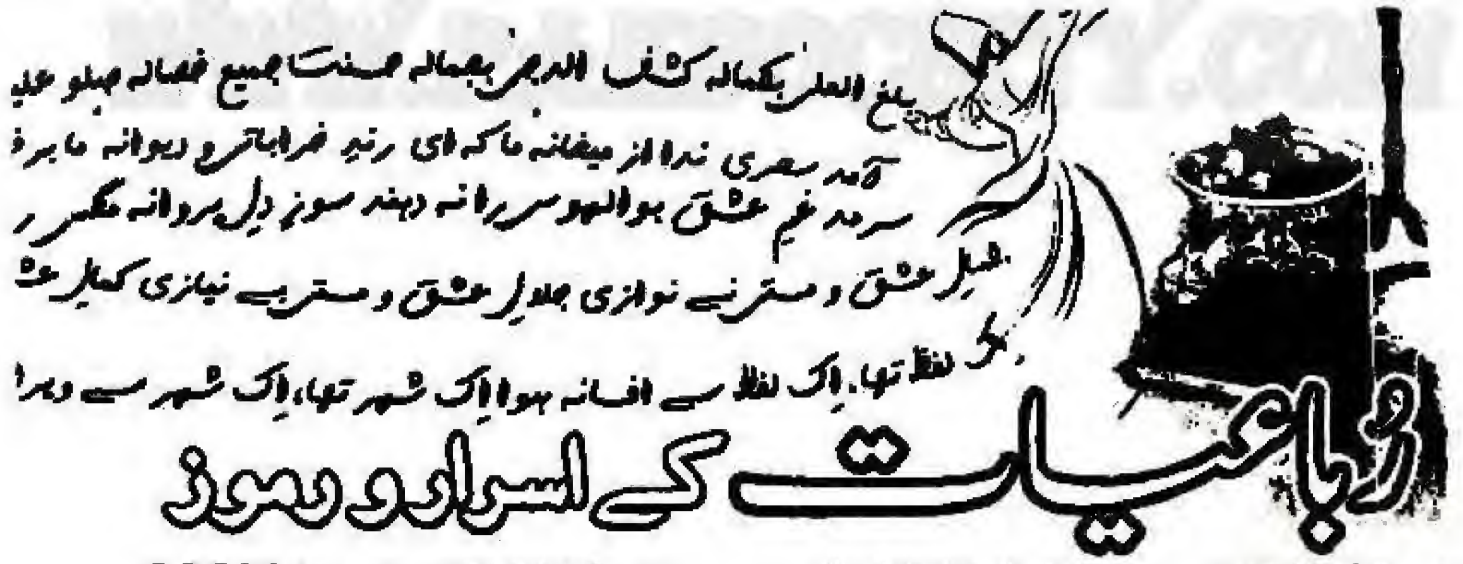 بلغ العلیٰ بکمالہ کشف الدجیٰ بجمالہ حسنت جمیع خصالہ صلو علیہ
آمد سحری ندا از میخانہ ما کہ ای رندِ خراباتی و دیوانہ ما برخ
سرمد غمِ عشق بوالہوس را نہ دہند سوزِ دلِ پروانہ مگس ر
عشق و مستی نے نوازی جلالِ عشق و مستی بے نیازی کمالِ عش
اک لفظ تھا، اِک لفظ سے افسانہ ہوا اِک شہر تھا، اِک شہر سے ویرا
رُباعیات کے اسرار و رموز